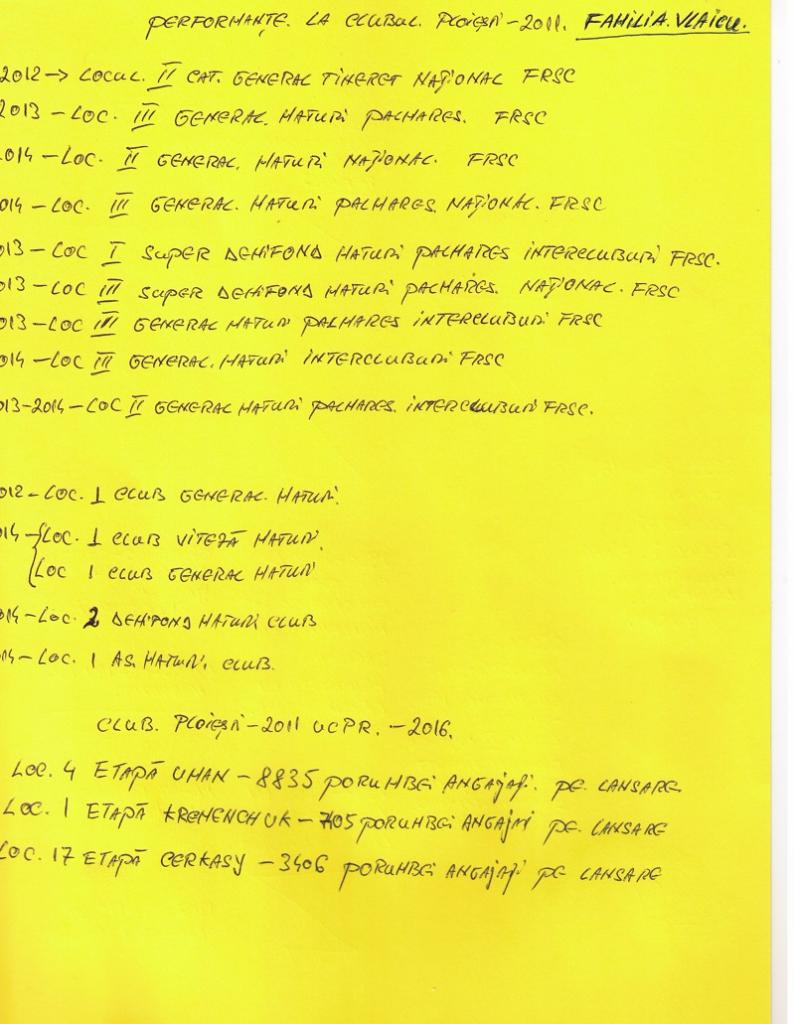 PERFORMANȚE. LA CLUBUL. PLOIEȘTI-2011. FAMILIA. VLAICU.
2012 → LOCUL. II CAT. GENERAL TINERET NAȚIONAL FRSC
2013 - LOC. III GENERAL. MATURI PALMARES. FRSC
014 - LOC. II GENERAL. MATURI NAȚIONAL. FRSC
014 - LOC. III GENERAL. MATURI PALMARES NAȚIONAL. FRSC
013 - LOC I SUPER DEMIFOND MATURI PALMARES INTERCLUBURI FRSC.
013 - LOC III SUPER DEMIFOND MATURI PALMARES. NAȚIONAL. FRSC
013 - LOC III GENERAL MATURI PALMARES INTERCLUBURI FRSC
014 - LOC III GENERAL. MATURI INTERCLUBURI FRSC
013-2014 - LOC II GENERAL MATURI PALMARES. INTERCLUBURI FRSC.
012 - LOC. 1 CLUB GENERAL. MATURI.
014 - {LOC. 1 CLUB VITEZĂ MATURI.
{LOC 1 CLUB GENERAL MATURI
014 - LOC. 2 DEMIFOND MATURI CLUB
014 - LOC. 1 AS. MATURI. CLUB.
CLUB. PLOIEȘTI - 2011 UCPR. - 2016.
LOC. 4 ETAPĂ UMAN - 8835 PORUMBEI ANGAJAȚI. PE. LANSARE.
LOC. 1 ETAPĂ KREMENCHUK - 705 PORUMBEI ANGAJAȚI PE. LANSARE
LOC. 17 ETAPĂ CERKASY - 3406 PORUMBEI ANGAJAȚI PE LANSARE